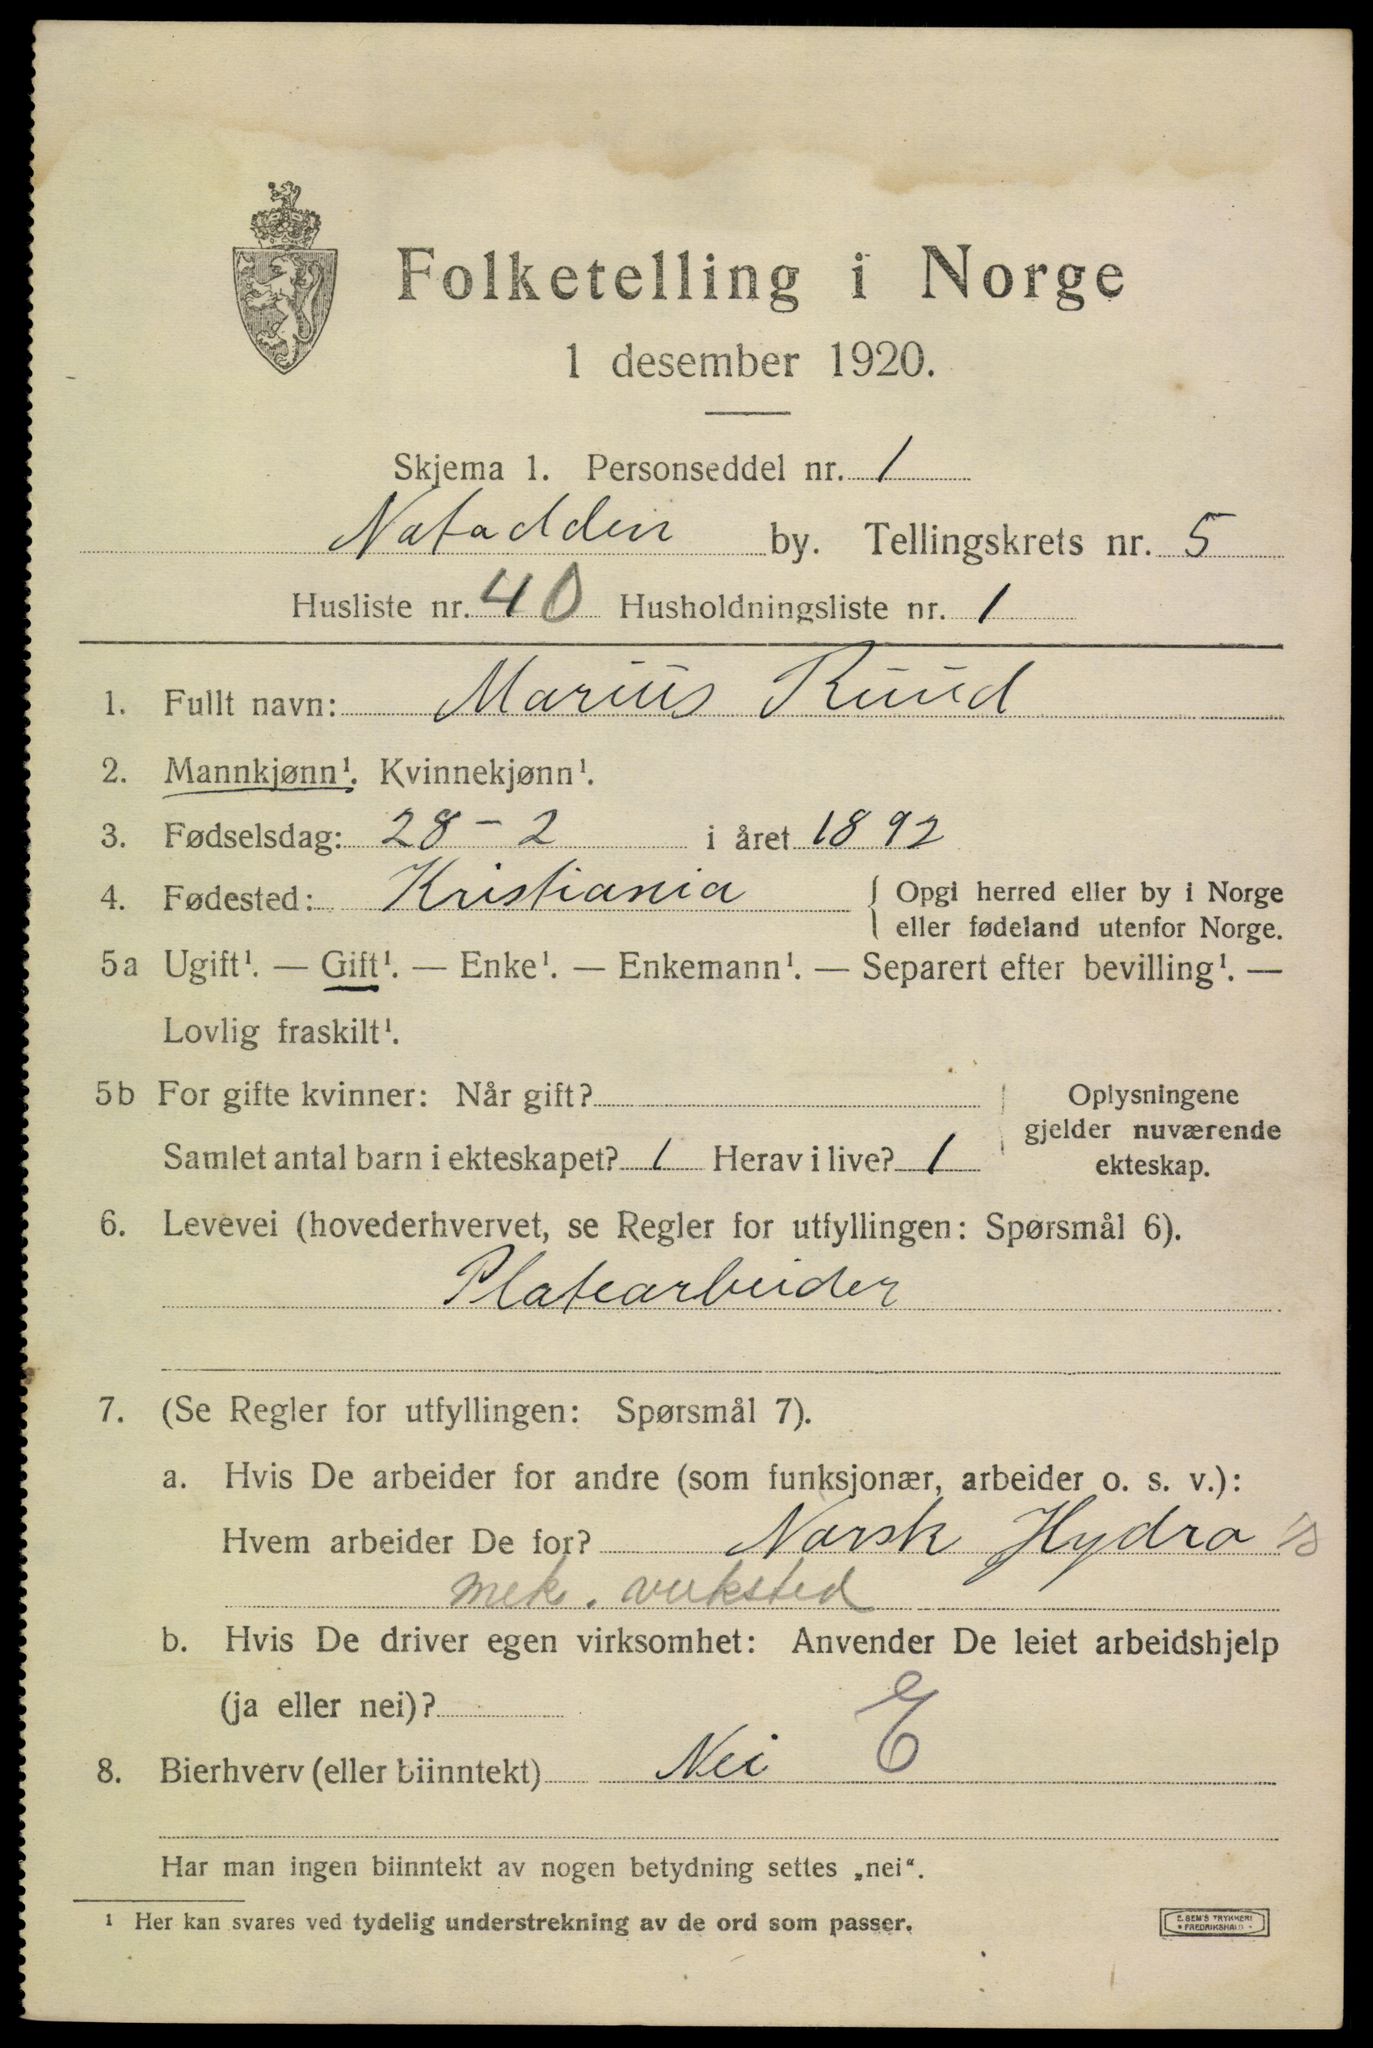 Folketelling i Norge
1 desember 1920.
Skjema 1. Personseddel nr. 1
Notodden by. Tellingskrets nr. 5
Husliste nr. 40 Husholdningsliste nr. 1
1. Fullt navn: Marius Ruud
2. Mannkjønn¹. Kvinnekjønn¹.
3. Fødselsdag: 28 - 2 i året 1892
4. Fødested: Kristiania { Opgi herred eller by i Norge
eller fødeland utenfor Norge.
5a Ugift¹. — Gift¹. — Enke¹. — Enkemann¹. — Separert efter bevilling¹. —
Lovlig fraskilt¹.
5b For gifte kvinner: Når gift?
Samlet antal barn i ekteskapet? 1 Herav i live? 1
Oplysningene
gjelder nuværende
ekteskap.
6. Levevei (hovederhvervet, se Regler for utfyllingen: Spørsmål 6).
Platearbeider
7. (Se Regler for utfyllingen: Spørsmål 7).
a. Hvis De arbeider for andre (som funksjonær, arbeider o. s. v.):
Hvem arbeider De for? Norsk Hydro's
mek. verksted
b. Hvis De driver egen virksomhet: Anvender De leiet arbeidshjelp
(ja eller nei)?
E
8. Bierhverv (eller biinntekt) Nei
Har man ingen biinntekt av nogen betydning settes „nei“.
¹ Her kan svares ved tydelig understrekning av de ord som passer.
E. SEM'S TRYKKERI
FREDRIKSHALD